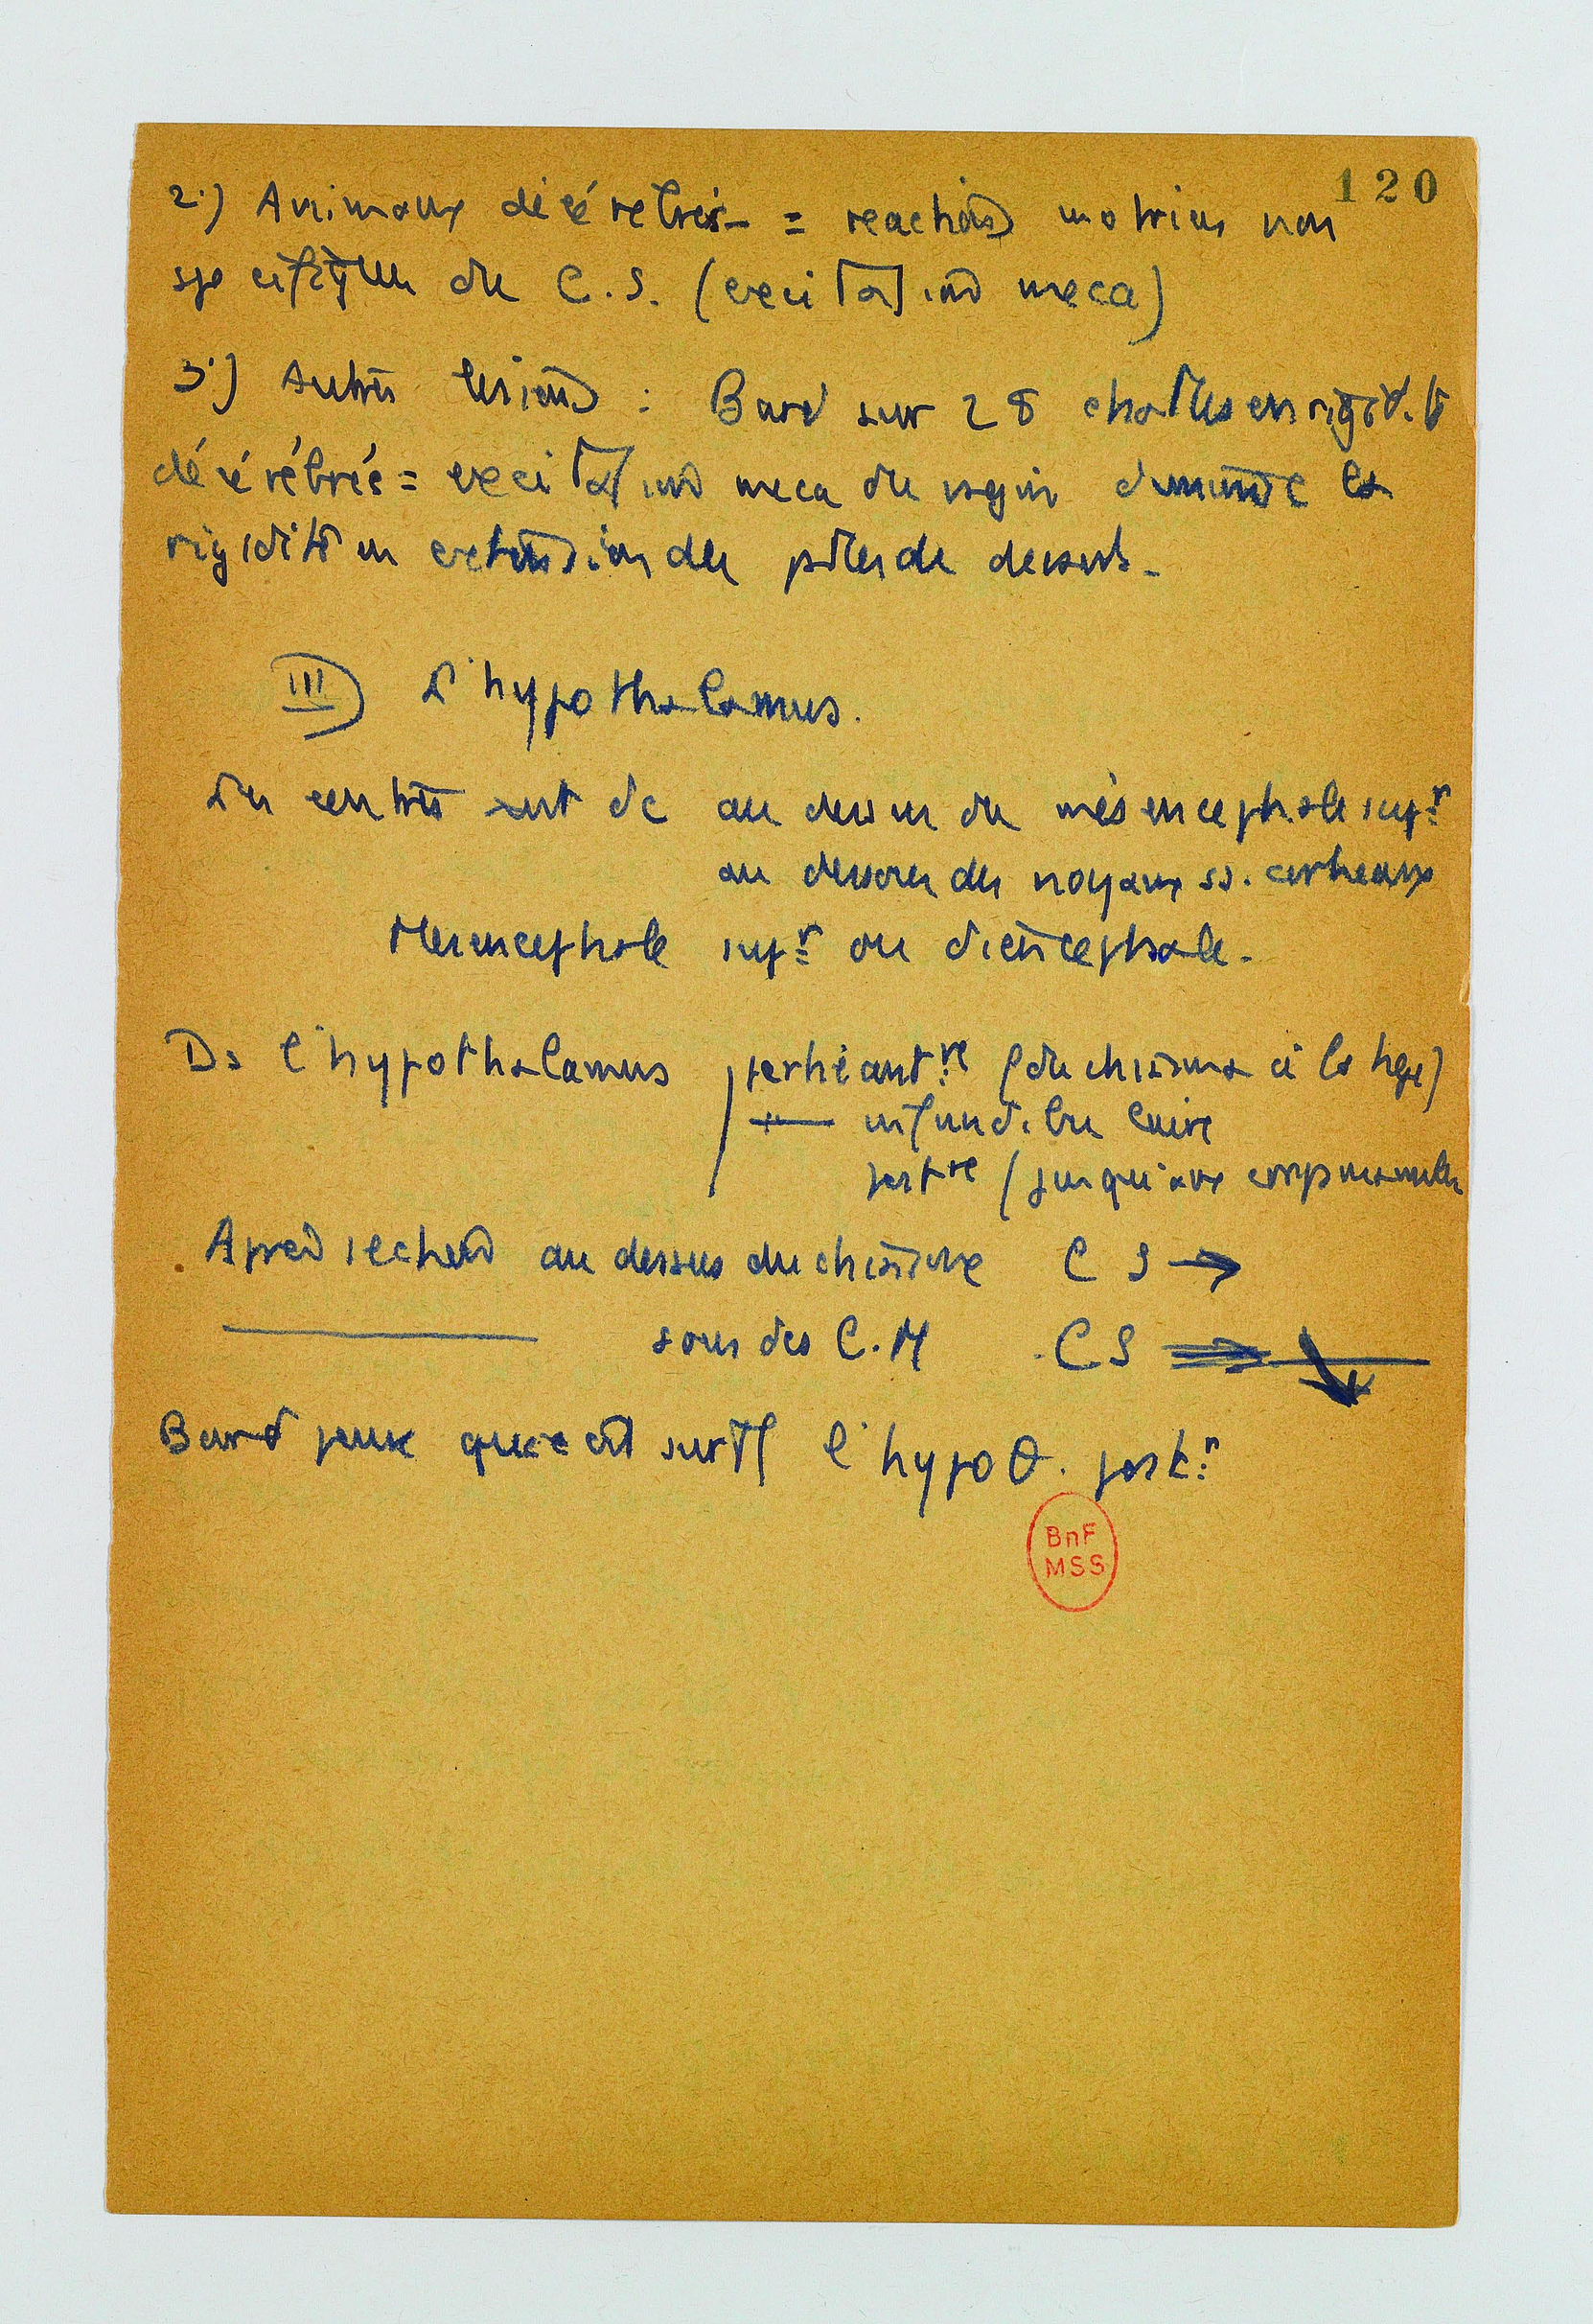 120
2°) Animaux décérébrés = reactions motrices non
specifiques du C.S. (excitations meca)
3°) Autres lesions : Bard sur 28 chattes en rigidité
décérébrés = excitations meca du vagin diminue la
rigidité en extension des pattes de devant.
III) L'hypothalamus.
Les centres sont dc au dessus du mésencephale supr
au dessous des noyaux ss. corticaux
Mesencephale supr ou diencephale.
Ds l'hypothalamus partie antre (du chiasma à la tige)
— infundibulaire
postre (jusqu'aux corps mamill
Apres section au dessus du chiasma C S →
sous des C.M C S
Bard pense que c'est surtt l'hypoθ. postr
BnF
MSS